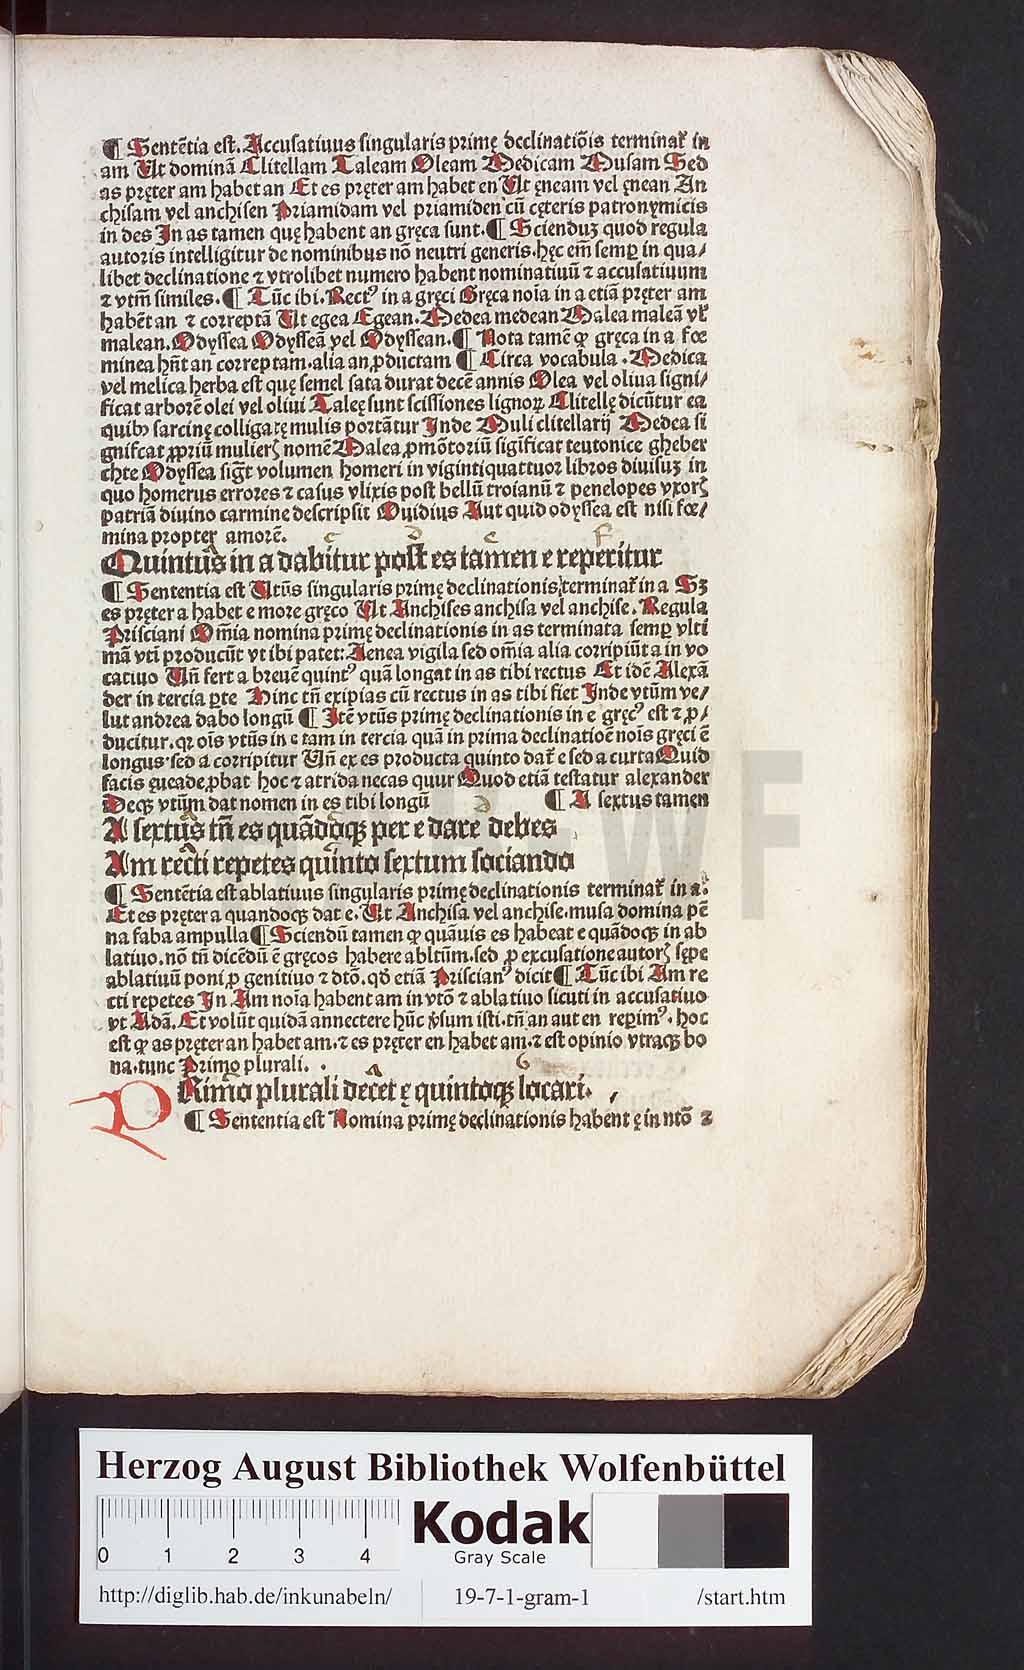 ¶ Sentētia est. Accusatiuus singularis primę declinatiōis terminat᷑ in
am Ut dominā Clitellam Taleam Oleam Medicam Musam Sed
as pręter am habet an Et es pręter am habet en Ut ęneam vel ęnean An
chisam vel anchisen Priamidam vel priamiden cū cęteris patronymicis
in des In as tamen quę habent an gręca sunt. ¶ Scienduꝫ quod regula
autoris intelligitur de nominibus nō neutri generis. hęc em̄ semꝑ in qua/
libet declinatione ⁊ vtrolibet numero habent nominatiuū ⁊ accusatiuum
⁊ vtm̄ similes. ¶ Tūc ibi. Rectꝰ in a gręci Gręca noīa in a etiā pręter am
habēt an ⁊ correptā Ut egea Egean. Medea medean Malea maleā vł
malean. Odyssea Odysseā vel Odyssean. ¶ Nota tamē ꝙ gręca in a fœ
minea hn̄t an correptam. alia an ꝓductam ¶ Circa vocabula. Medica
vel melica herba est quę semel sata durat decē annis Olea vel oliua signi/
ficat arborē olei vel oliui Taleę sunt scissiones lignoꝝ Clitellę dicūtur ea
quibꝰ sarcinę colligatę mulis portātur Inde Muli clitellarij Medea si
gnifcat ꝓpriū mulierꝭ nomē Malea ꝓmōtoriū sigificat teutonice gheber
chte Odyssea sigt̄ volumen homeri in vigintiquattuor libros diuisuꝫ in
quo homerus errores ⁊ casus vlixis post bellū troianū ⁊ penelopes vxorꝭ
patriā diuino carmine descripsit Ouidius Aut quid odyssea est nisi fœ/
mina propter amorē.
c d e f
Quintus in a dabitur post es tamen e reperitur
¶ Sententia est Utūs singularis primę declinationis terminat᷑ in a Sꝫ
es pręter a habet e more gręco Ut Anchises anchisa vel anchise. Regula
Prisciani Om̄ia nomina primę declinationis in as terminata semꝑ vlti
mā vti producūt vt ibi patet: Aenea vigila sed om̄ia alia corripiūt a in vo
catiuo Un̄ fert a breuē quintꝰ quā longat in as tibi rectus Et idē Alexā
der in tercia ꝑte Hinc tn̄ excipias cū rectus in as tibi fiet Inde vtūm ve/
lut andrea dabo longū ¶ Itē vtūs primę declinationis in e gręcꝰ est ⁊ ꝓ/
ducitur. qꝛ oīs vtūs in e tam in tercia quā in prima declinatioē noīs gręci ē
longus. sed a corripitur Un̄ ex es producta quinto dat᷑ e sed a curta Quid
facis ęneade ꝓbat hoc ⁊ atrida necas quur Quod etiā testatur alexander
Deqꝫ vtūm dat nomen in es tibi longū ¶ A sextus tamen
A sextus tn̄ es quādoqꝫ per e dare debes
Am recti repetes quinto sextum sociando
¶ Sentētia est ablatiuus singularis primę declinationis terminat᷑ in a.
Et es pręter a quandoqꝫ dat e. Ut Anchisa vel anchise. musa domina pē
na faba ampulla ¶ Sciendū tamen ꝙ quāuis es habeat e quādoqꝫ in ab
latiuo. nō tn̄ dicēdū ē gręcos habere abltūm. sed ꝓ excusatione autorꝭ sępe
ablatiuū poni ꝓ genitiuo ⁊ dtō. qđ etiā Priscianꝰ dicit ¶ Tūc ibi Am re
cti repetes In Am noīa habent am in vtō ⁊ ablatiuo sicuti in accusatiuo
vt Adā. Et volūt quidā annectere hūc v̓sum isti. tn̄ an aut en reꝑimꝰ. hoc
est ꝙ as pręter an habet am. ⁊ es pręter en habet am. ⁊ est opinio vtraqꝫ bo
na. tunc Primo plurali.
PRimo plurali decet ę quintoqꝫ locari.
¶ Sententia est Nomina primę declinationis habent ę in ntō ⁊
HAB WF
Herzog August Bibliothek Wolfenbüttel
0 1 2 3 4
Kodak
Gray Scale
http://diglib.hab.de/inkunabeln/ 19-7-1-gram-1 /start.htm